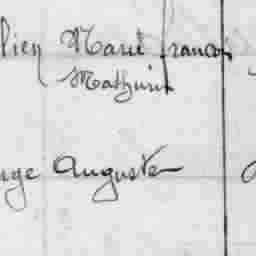 lien Marie francois
Mathurin
nge Auguste